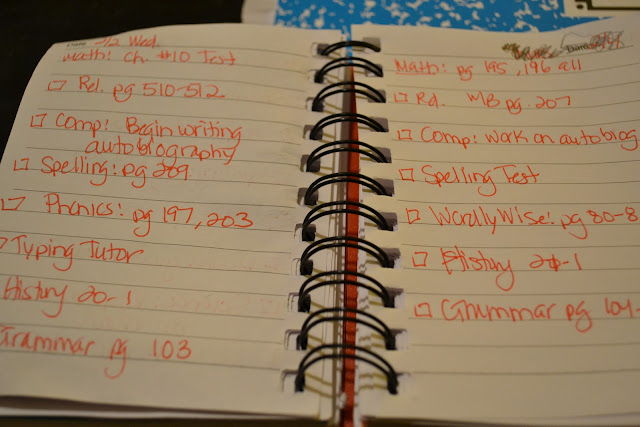 Wed.
Math: Ch #10 Test
Rd. pg 510-512
Comp: Begin writing
autobiography
Spelling: pg 209
Phonics: pg 197, 203
Typing Tutor
History 20-1
Grammar pg 103
Math: pg 195, 196 all
Rd. WB pg. 207
Comp: work on autobiog
Spelling Test
Wordly Wise: pg 80-8
History 21-1
Grammar pg 104-